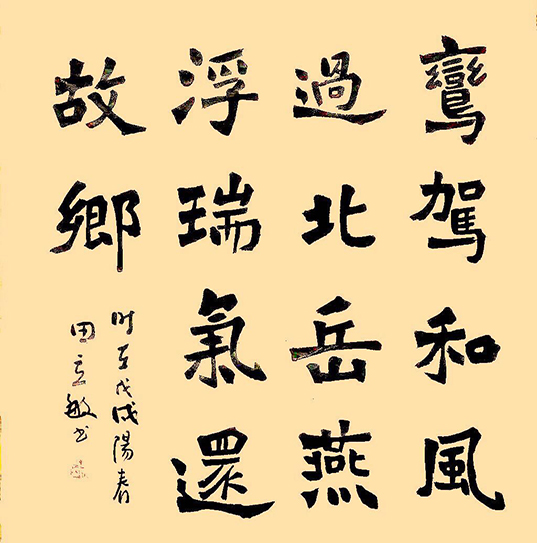 鸞駕和風
過北岳燕
浮瑞氣還
故鄉
時在戊戌陽春
田立敏书